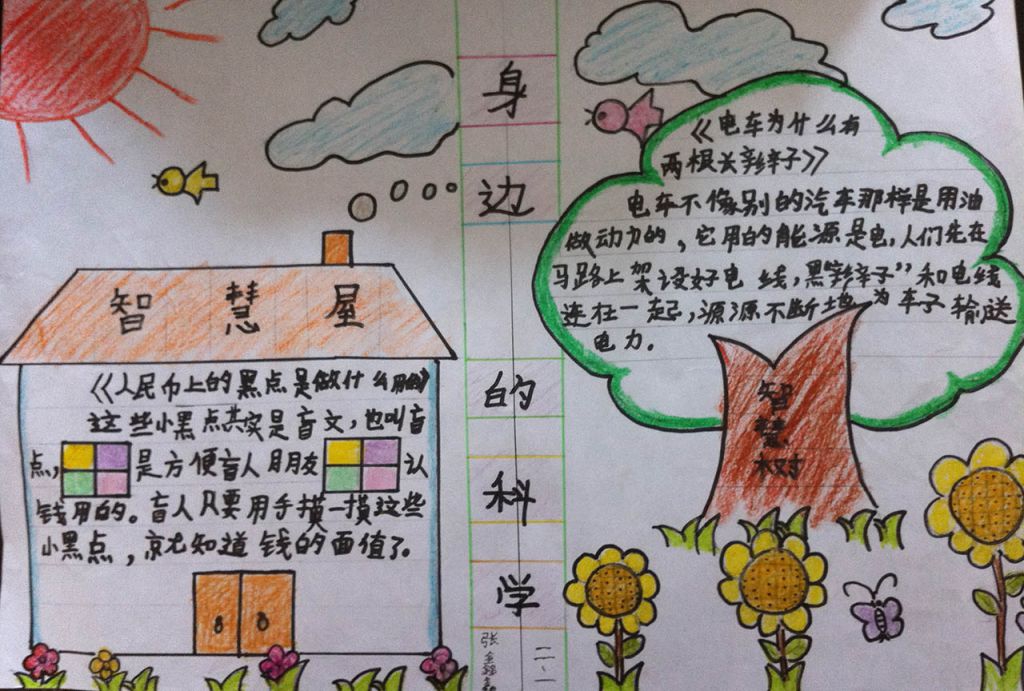 身
边
的
科
学
智慧屋
《人民币上的黑点是做什么用的》
这些小黑点其实是盲文,也叫盲
点,是方便盲人朋友认
钱用的。盲人只要用手摸一摸这些
小黑点,就知道钱的面值了。
《电车为什么有
两根长辫子》
电车不像别的汽车那样是用油
做动力的,它用的能源是电,人们先在
马路上架设好电线,黑辫子”和电线
连在一起,源源不断地为车子输送
电力。
智
慧
树
二、一